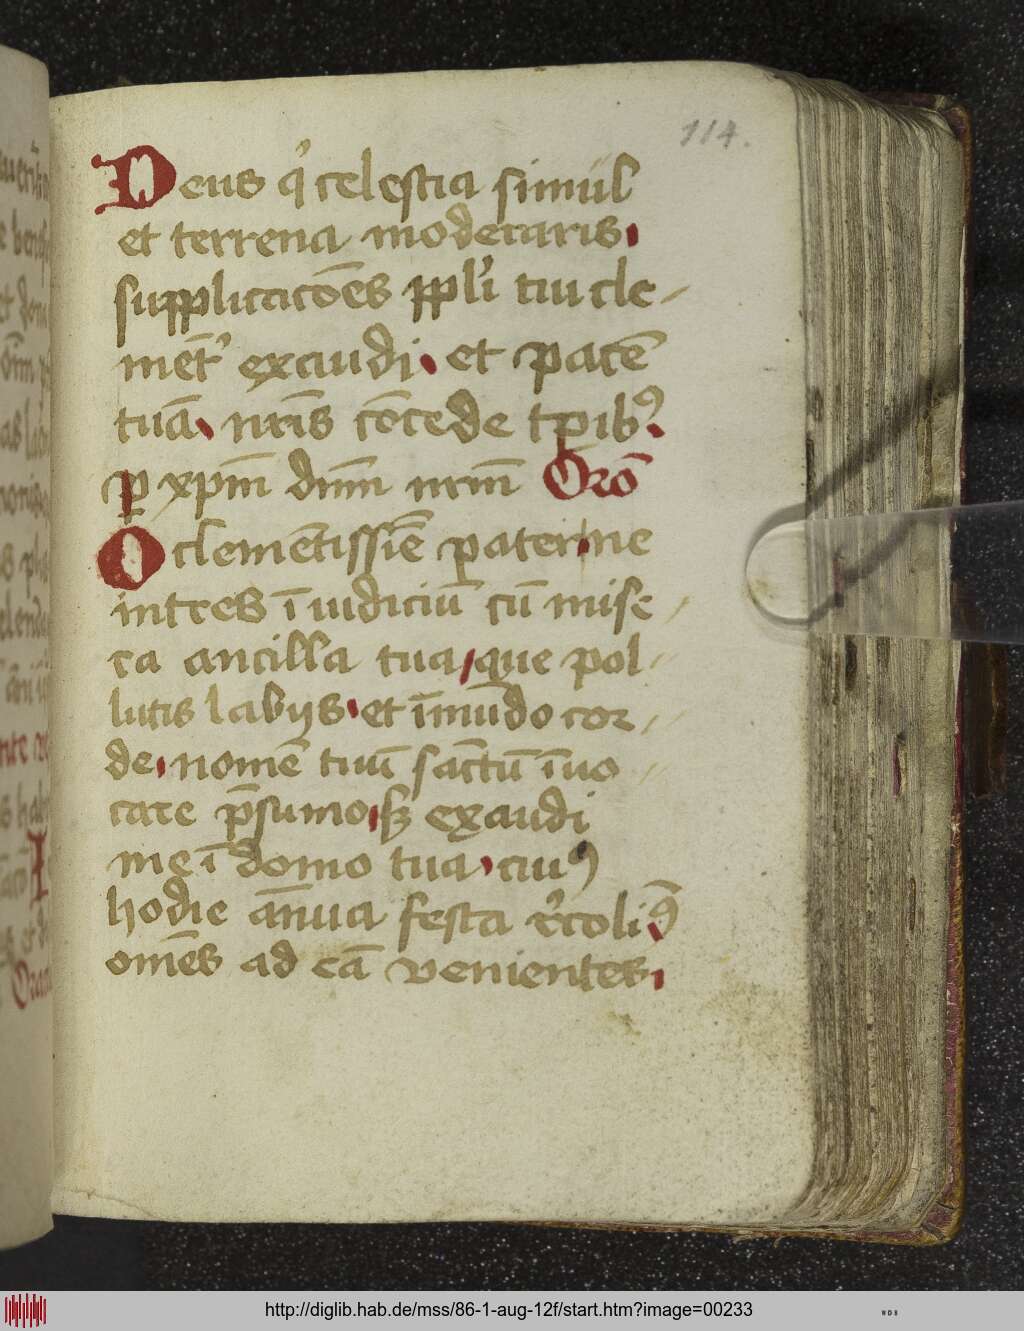 114.
Deus qͥ celestia simul
et terrena moderaris.
supplicacōes ppl̓i tui cle-
mēt᷑ exaudi. et pacē
tuā. nr̄is cōcede tꝑib⁹.
ꝑ xp̄m dn̄m nr̄m Orō
O clemētissīe pater. ne
intres ī iudiciū cū mise-
ra ancilla tua. que pol-
lutis labijs. et īmūdo cor-
de. nomē tuū sāctū īuo-
care p̄sumo. sꝫ exaudi
me ī domo tua. cui⁹
hodie ānua festa r̓colim⁹.
om̄es ad eā venientes.
http://diglib.hab.de/mss/86-1-aug-12f/start.htm?image=00233